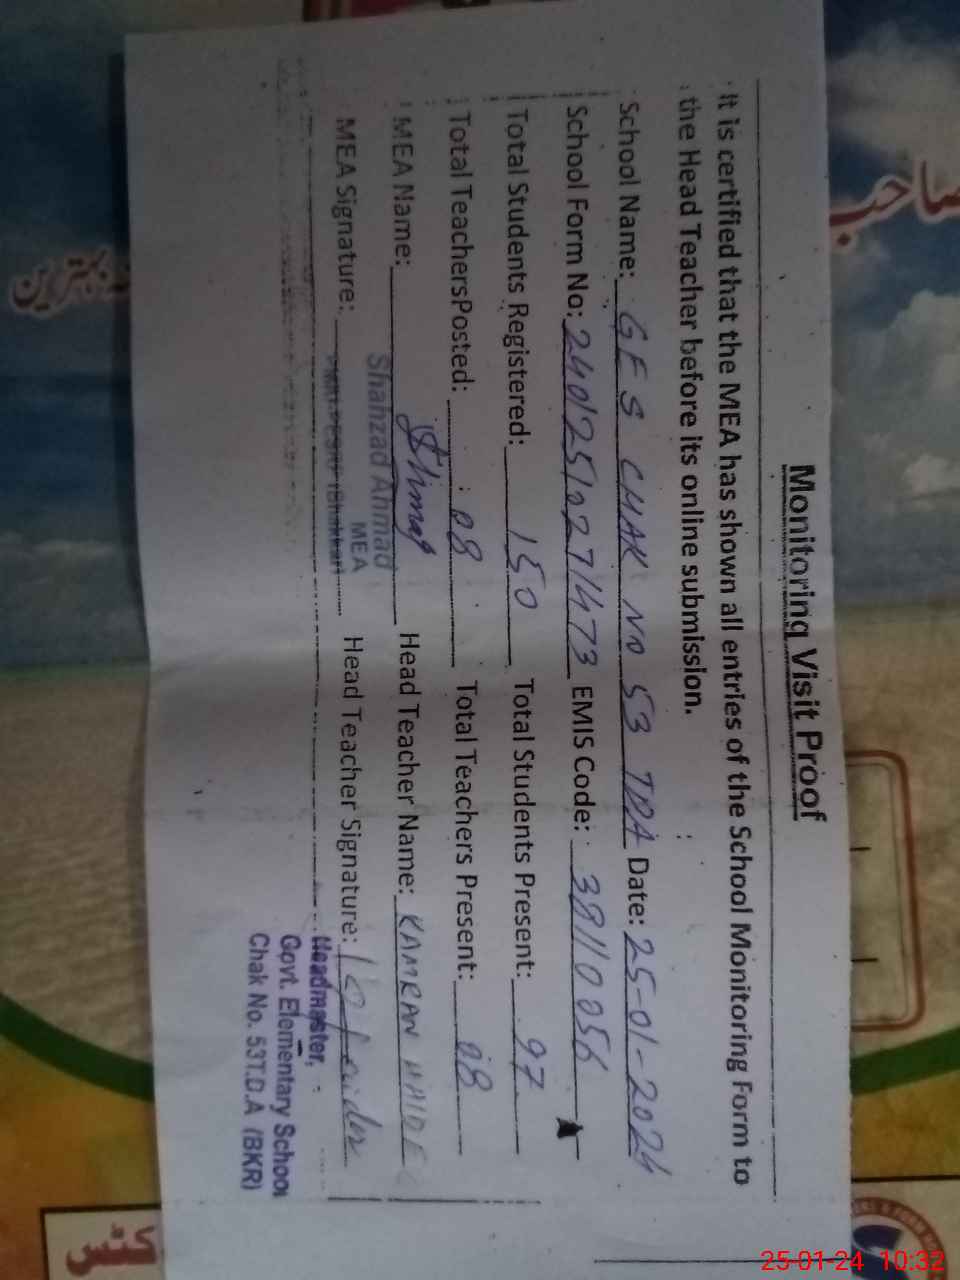 Monitoring Visit Proof
It is certified that the MEA has shown all entries of the School Monitoring Form to
the Head Teacher before its online submission.
School Name: GES CHAK NO 53 TDA Date: 25-01-2024
School Form No: 24012510271473 EMIS Code: 38110056
Total Students Registered: 150 Total Students Present: 97
Total TeachersPosted: 08 Total Teachers Present: 08
MEA Name: Head Teacher Name: KAMRAN HAIDE
Shahzad Ahmad
MEA
MEA Signature: Head Teacher Signature:
Headmaster,
Govt. Elementary School
Chak No. 53T.D.A (BKR)
صاحب
بہترین
کٹس
25-01-24 10:32